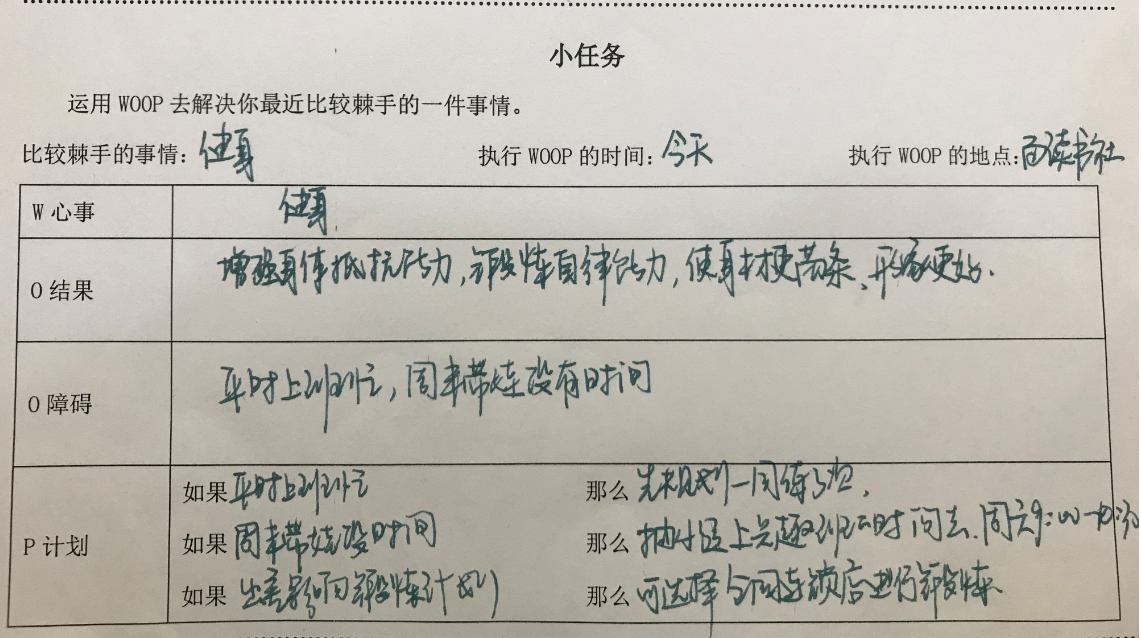 小任务
运用 WOOP 去解决你最近比较棘手的一件事情。
比较棘手的事情：健身 执行 WOOP 的时间：今天 执行 WOOP 的地点：百读书社
W 心事 健身
O 结果 增强身体抵抗能力，锻炼自律能力，使身材更苗条、形象更好.
O 障碍 平时上班忙，周末带娃没有时间
P 计划
如果 平时上班忙 那么 先规划一周练3次，
如果 周末带娃没时间 那么 抽小区上兴趣班的时间去，周六9:00-10:30
如果 出差影响锻炼计划 那么 可选择全国连锁店进行锻炼.